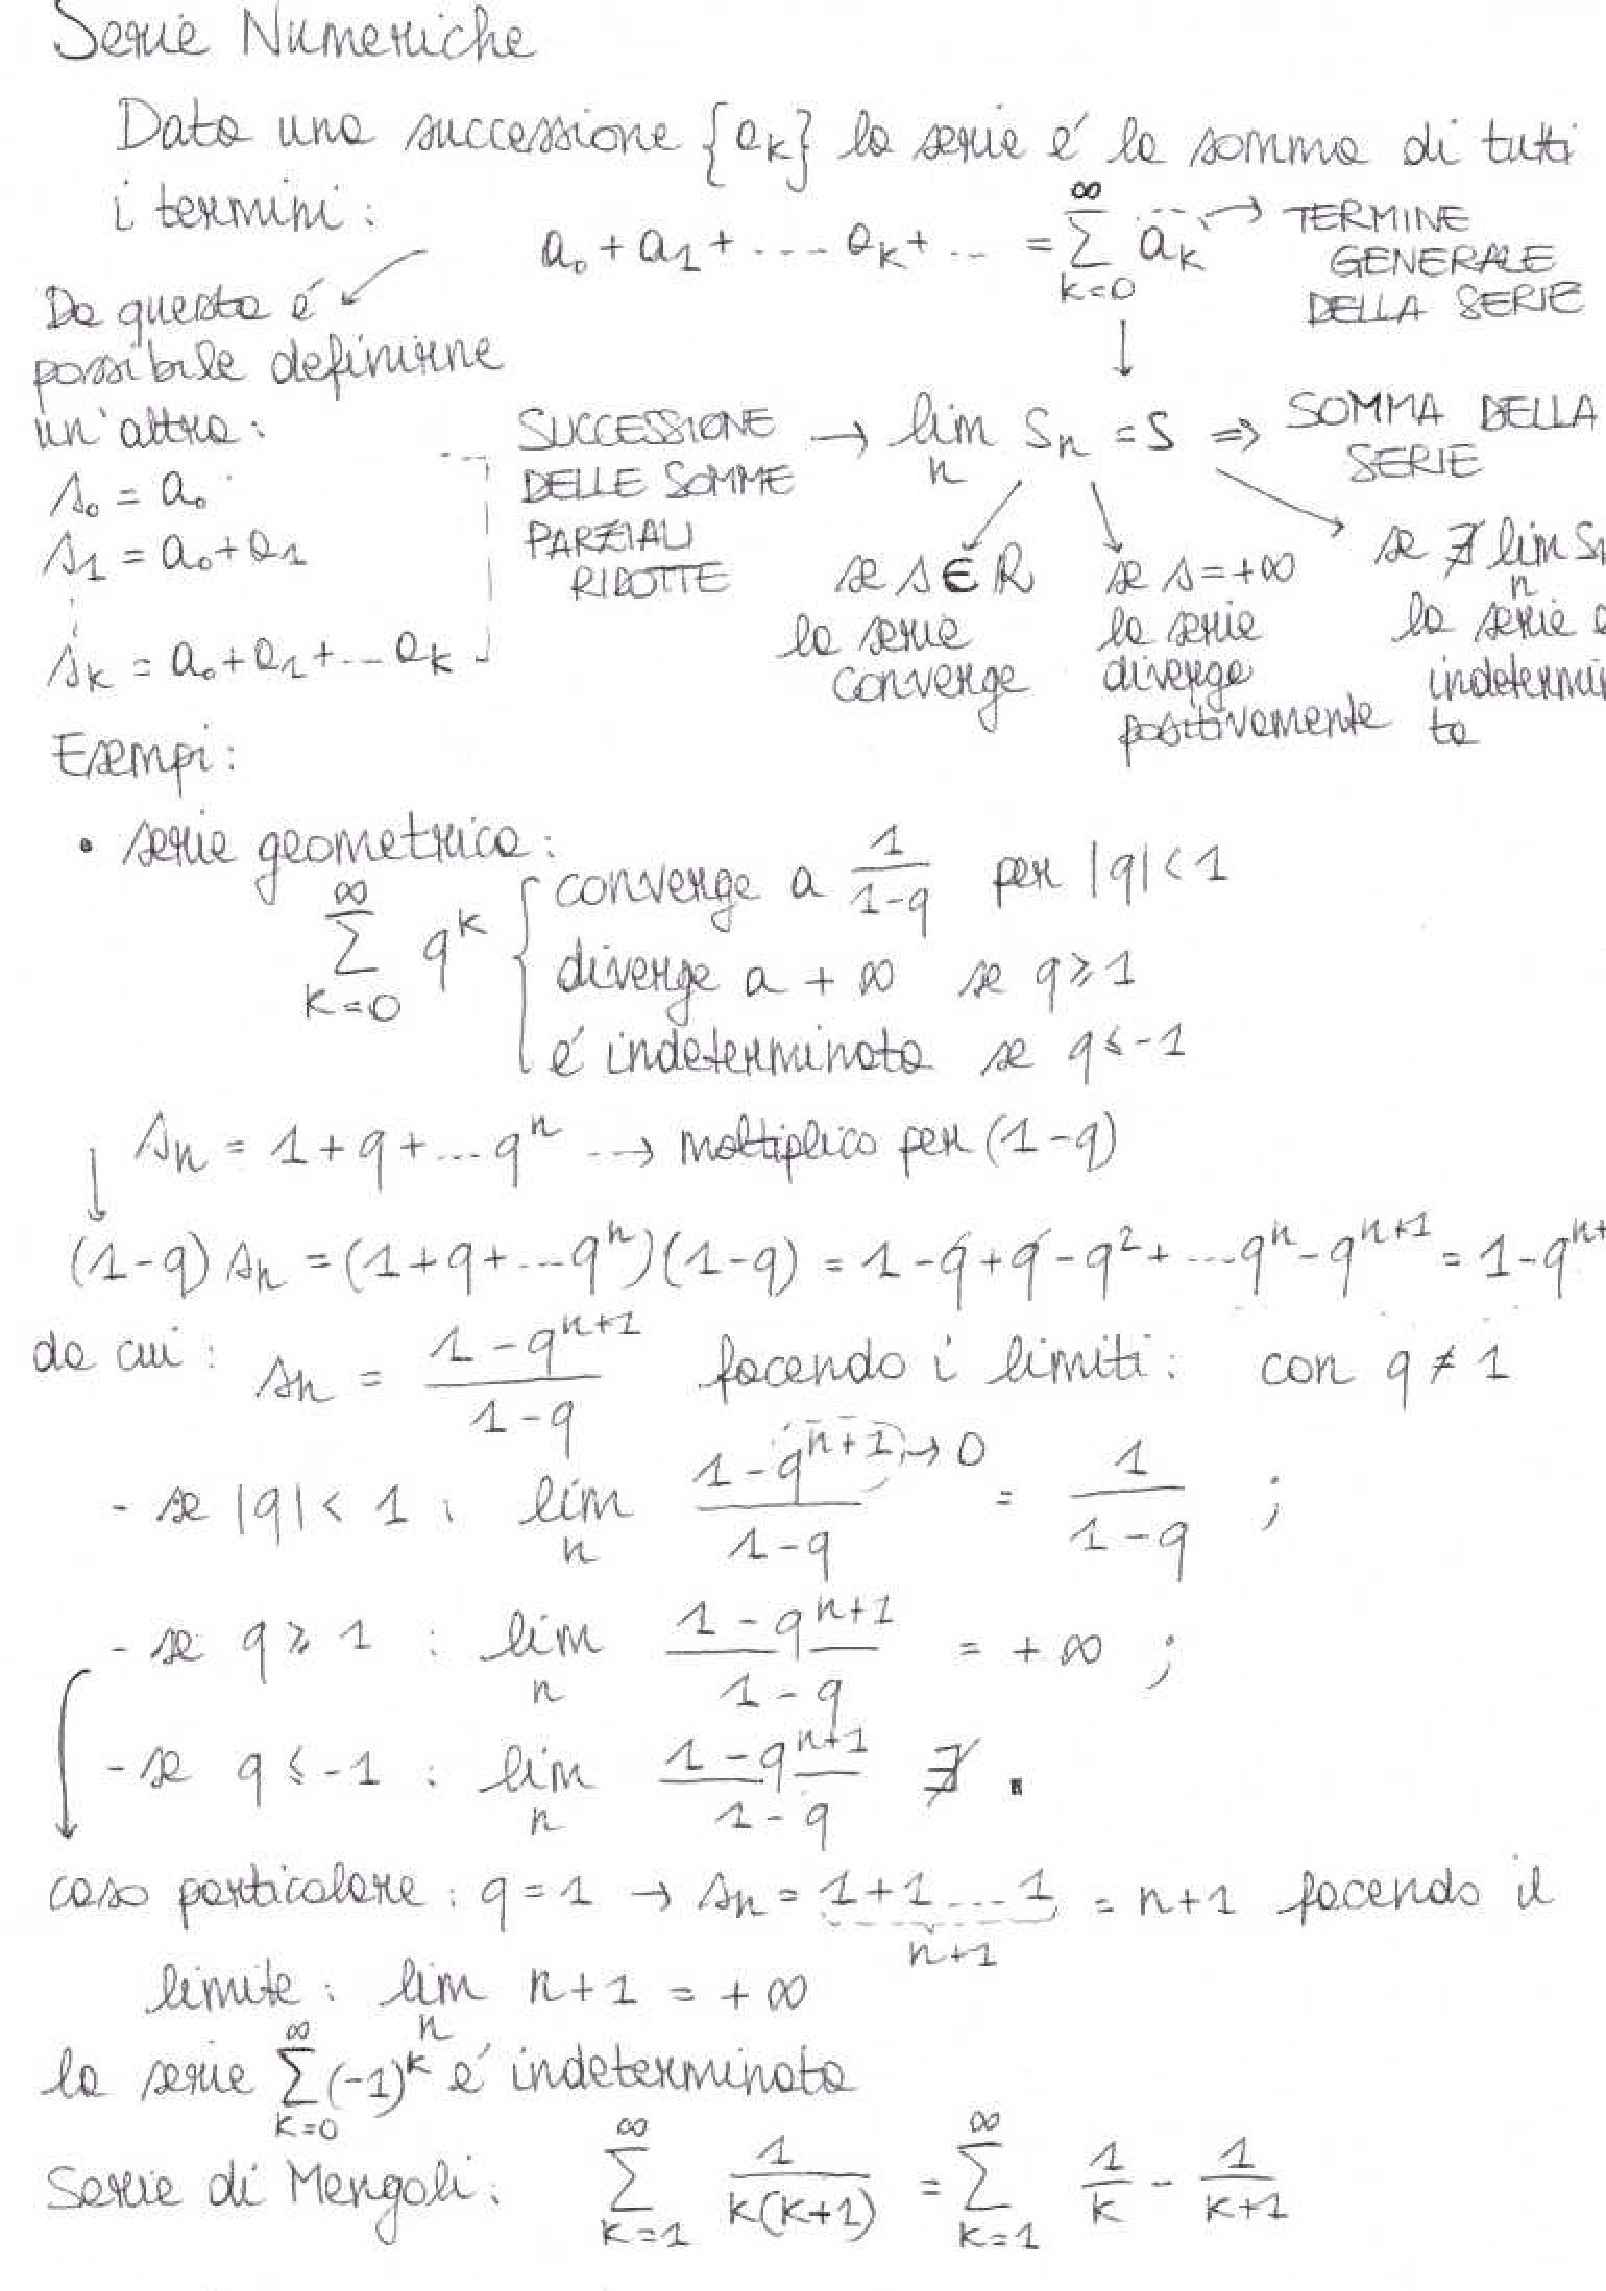 Serie Numeriche
Data una successione {a_k} la serie é la somma di tutti
i termini:
a_0 + a_1 + .... a_k + ... = ∑_{k=0}^{∞} a_k → TERMINE GENERALE DELLA SERIE
Da questa é
possibile definirne
un'altra:
s_0 = a_0
s_1 = a_0 + a_1
s_k = a_0 + a_1 + ... a_k
SUCCESSIONE
DELLE SOMME
PARZIALI
RIDOTTE
→ lim_n S_n = S ⇒ SOMMA DELLA SERIE
se s ∈ R
la serie
converge
se s = +∞
la serie
diverge
positivamente
se ∄ lim_n S
la serie
indetermi
ta
Esempi:
• serie geometrica:
∑_{k=0}^{∞} q^k { converge a 1/(1-q) per |q| < 1
diverge a + ∞ se q ⩾ 1
é indeterminata se q ⩽ -1
↓ s_n = 1 + q + ... q^n → moltiplico per (1-q)
(1-q) s_n = (1 + q + ... q^n)(1-q) = 1 - q + q - q^2 + ... q^n - q^{n+1} = 1 - q^{n+
da cui: s_n = (1 - q^{n+1})/(1-q) facendo i limiti: con q ≠ 1
- se |q| < 1 : lim_n (1 - q^{n+1})/(1-q) → 0 = 1/(1-q) ;
- se q ⩾ 1 : lim_n (1 - q^{n+1})/(1-q) = + ∞ ;
- se q ⩽ -1 : lim_n (1 - q^{n+1})/(1-q) ∄ .
caso particolare: q = 1 → s_n = 1 + 1 ... 1 = n+1 facendo il
n+1
limite: lim_n n+1 = + ∞
la serie ∑_{k=0}^{∞} (-1)^k é indeterminata
Serie di Mengoli: ∑_{k=1}^{∞} 1/(k(k+1)) = ∑_{k=1}^{∞} 1/k - 1/(k+1)